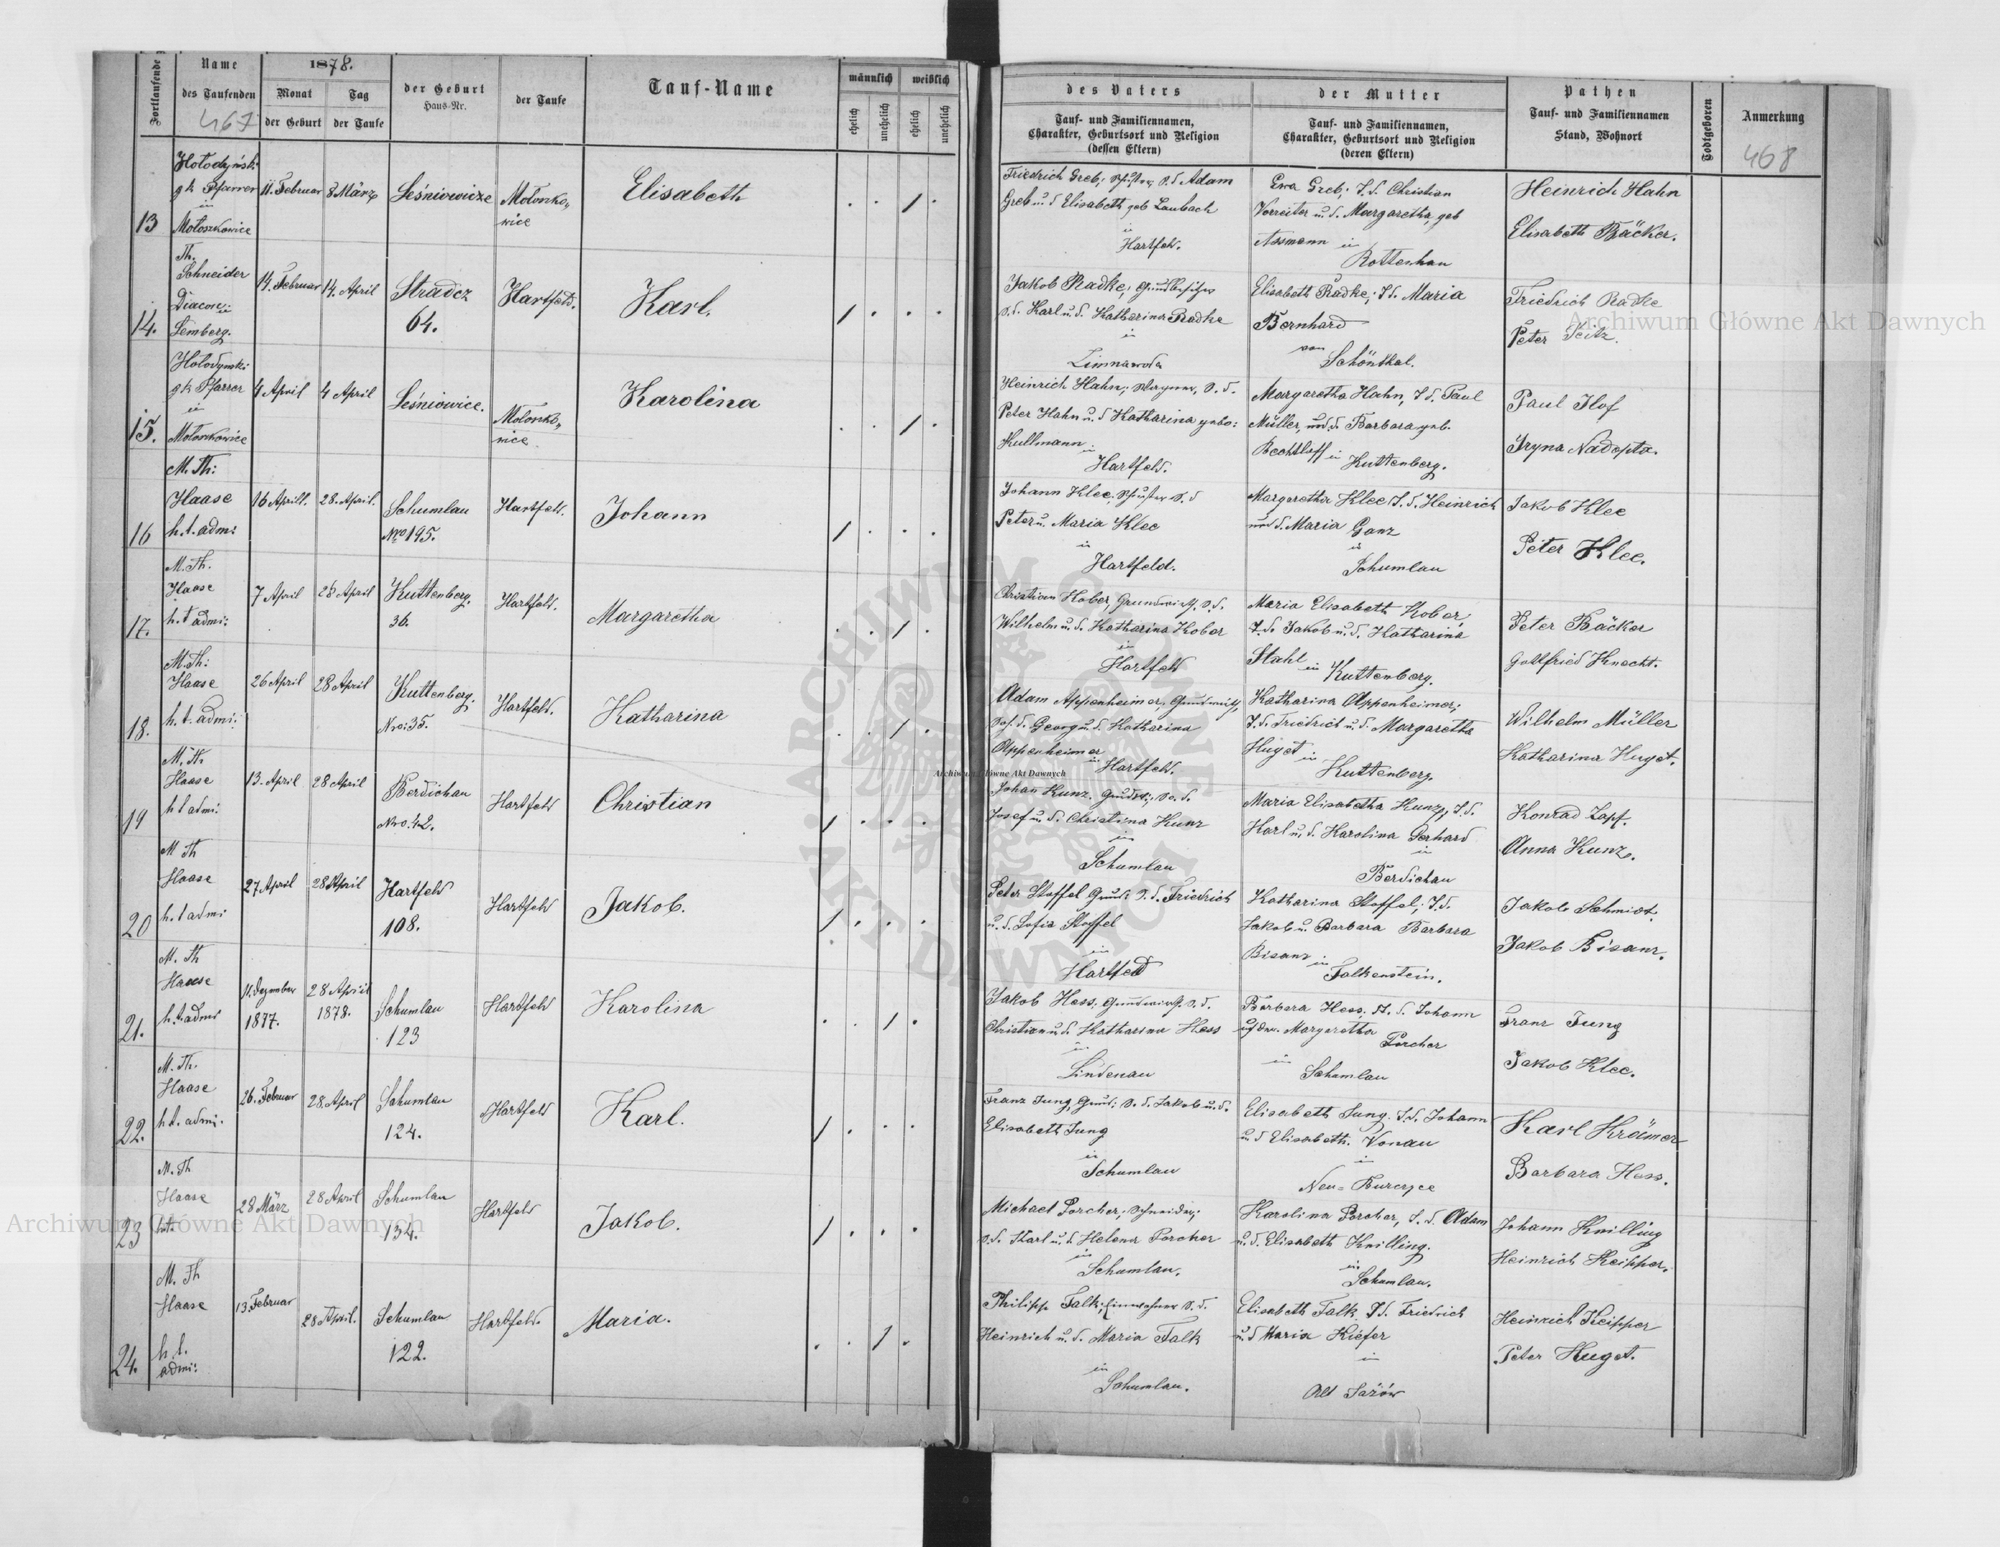 Fortlaufende
Name
des Taufenden
467
1878.
Monat
Tag
der Geburt
der Taufe
der Geburt
Haus-Nr.
der Taufe
Tauf-Name
männlich
weiblich
ehelich
unehelich
ehelich
unehelich
des Vaters
Tauf- und Familiennamen,
Charakter, Geburtsort und Religion
(dessen Eltern)
der Mutter
Tauf- und Familiennamen,
Charakter, Geburtsort und Religion
(deren Eltern)
Pathen
Tauf- und Familiennamen
Stand, Wohnort
Todtgeboren
Anmerkung
468
13
gk Pfarrer
in
Mołoszkowice
11. Februar
8 März
Leśniowicze
Mołoszko-
wice
Elisabeth
Friedrich Greb; S.d. Adam
Greb u. d Elisabeth geb Laubach
in
Hartfeld.
Ewa Greb; T.d. Christian
Vorreiter u. d. Margaretha, geb
Assmann in
Rottenhan
Heinrich Hahn
Elisabeth Bäcker.
14.
Th.
Schneider
Diacon
in
Lemberg.
14. Februar
14. April
Stradcz
64.
Hartfeld.
Karl.
Jakob Radke; Grundbesitzer
S.d. Karl u. d. Katharina Radke
in
Elisabeth Radke; T.d. Maria
Bernhard
von
Schönthal.
Friedrich Radke
Peter Seitz.
15.
gk Pfarrer
in
4 April
4 April
Leśniowice.
wice
Karolina
Heinrich Hahn; S. d.
Peter Hahn u. d Katharina gebo:
Kullmann
in
Hartfeld.
Margaretha Hahn, T.d. Paul
Müller, und d. Barbara geb.
Bechtloff in Kuttenberg.
Paul Ilof
Iryna Nadopta.
16
M. Th:
Haase
h. t. adm:
16 Aprill.
28. April.
Schumlau
Nro 195.
Hartfeld.
Johann
Johann Klee. S. d
Peter u. Maria Klee
in
Hartfeld.
Margaretha Klee T. d. Heinrich
und d. Maria Ganz
in
Schumlau
Jakob Klee
Peter Klee.
17.
M. Th.
Haase
h. t admi:
7 April
28 April
Kuttenberg.
36.
Hartfeld.
Margaretha
Christian Kober, Grundwirth, S.d.
Wilhelm u. d. Katharina Kober
in
Hartfeld
Maria Elisabeth Kober,
T. d. Jakob u. d. Katharina
Stahl in Kuttenberg.
Peter Bäcker
Gottfried Knecht.
18.
M. Th:
Haase
h. t. admi:
26 April
28 April
Kuttenberg.
Nro: 35.
Hartfeld.
Katharina
Adam Appenheimer, Grundwirth,
Soh. d. Georg u. d. Katharina
Appenheimer
in Hartfeld.
Katharina Appenheimer;
T. d. Friedrich u. d. Margaretha
Huget in
Kuttenberg.
Wilhelm Müller
Katharina Huget.
19
M. Th.
Haase
h t admi:
13. April
28 April
Berdichau
Nro. 42.
Hartfeld
Christian
Johan Kunz. Grundw; So. d.
Josef u. d. Christina Kunz
in
Schumlau
Maria Elisabetha Kunz, T. d.
Karl u. d. Karolina Gerhard
in
Berdichau
Konrad Zapf.
Anna Kunz.
20
M Th
Haase
h. t admi
27 April
28 April
Hartfeld
108.
Hartfeld
Jakob.
Peter Stoffel Grund: S. d. Friedrich
u. d. Sofia Stoffel
in
Hartfeld
Katharina Stoffel; T. d.
Jakob u. Barbara Barbara
Bisanz in
Falkenstein.
Jakob Schmidt.
Jakob Bisanz.
21.
M. Th
Haase
h. t. admi
11. Dezember
1877.
28 April
1878.
Schumlau
123
Hartfeld
Karolina
Jakob Hess; Grundwirth S. d.
Christian u. d. Katharina Hess
in
Lindenau
Barbara Hess, T. d. Johann
Margaretha
Porcher
in
Schumlau
Franz Jung
Jakob Klee.
22.
M. Th.
Haase
h t. admi:
26. Februar
28. April
Schumlau
124.
Hartfeld
Karl.
Franz Jung, Grund: S. d. Jakob u. d.
Elisabeth Jung
in
Schumlau
Elisabeth Jung. T. d. Johann
u. d Elisabeth. Vonau
in
Neu-Burczyce
Karl Krämer
Barbara Hess.
23
M. Th
Haase
h. t.
28 März
28 April
Schumlau
134.
Hartfeld
Jakob.
Michael Porcher; Schneider;
S. d. Karl u. d. Helena Porcher
in
Schumlau.
Karolina Porcher, T. d. Adam
u. d. Elisabeth Knilling.
in
Schumlau.
Johann Knilling
Heinrich Keipper.
24.
M. Th
Haase
h. t.
admi:
13. Februar
28 April.
Schumlau
122.
Hartfeld.
Maria.
Philipp Falk; Einwohner S. d.
Heinrich u. d. Maria Falk
in
Schumlau.
Elisabeth Falk, T. d. Friedrich
u. d Maria Kiefer
in
Alt Jażów
Heinrich Keipper
Peter Huget.
Archiwum Główne Akt Dawnych
Archiwum Główne Akt Dawnych
Archiwum Główne Akt Dawnych
ARCHIWUM GŁÓWNE AKT DAWNYCH